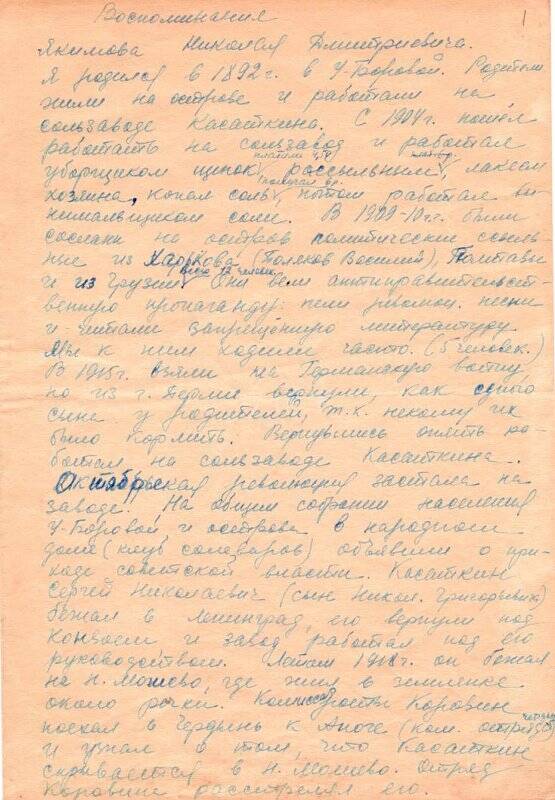 1
Воспоминания
Якимова Николая Дмитриевича.
Я родился в 1892 г. в У-Боровой. Родители
жили на острове и работали на
сользаводе Касаткина. С 1904г. пошёл
работать на сользавод и работал
платили
уборщиком щепок, рассыльным, лакеем
получал 6р.
хозяина, копал соль, потом работал вы
нимальщиком соли. В 1909-10г.г. были
сосланы на остров политические ссыль
ные из Харькова (Поляков Василий), Полтавы
всего 12 человек
и из Грузии. Они вели антиправительст-
венную пропаганду: пели револ. песни
и читали запрещённую литературу.
Мы к ним ходили часто. (5 человек.)
В 1915г. взяли на Германскую войну
но из г. Перми вернули, как одного
сына у родителей, т.к. некому их
было кормить. Вернувшись опять ра-
ботал на сользаводе Касаткина.
Октябрьская революция застала на
заводе. На общем собрании населения
У-Боровой и острова в народном
доме (клуб солеваров) объявили о при-
ходе советской власти. Касаткин
Сергей Николаевич (сын Никол. Григорьевич)
бежал в Ленинград, его вернули под
конвоем и завод работал под его
руководством. Летом 1918г. он бежал
на Н. Мошево, где жил в землянке
около речки. Коровин
поехал в Чердынь к (ком. отряда)
и узнал о том, что Касаткин
скрывается в Н. Мошево. Отряд
Коровина расстрелял его.